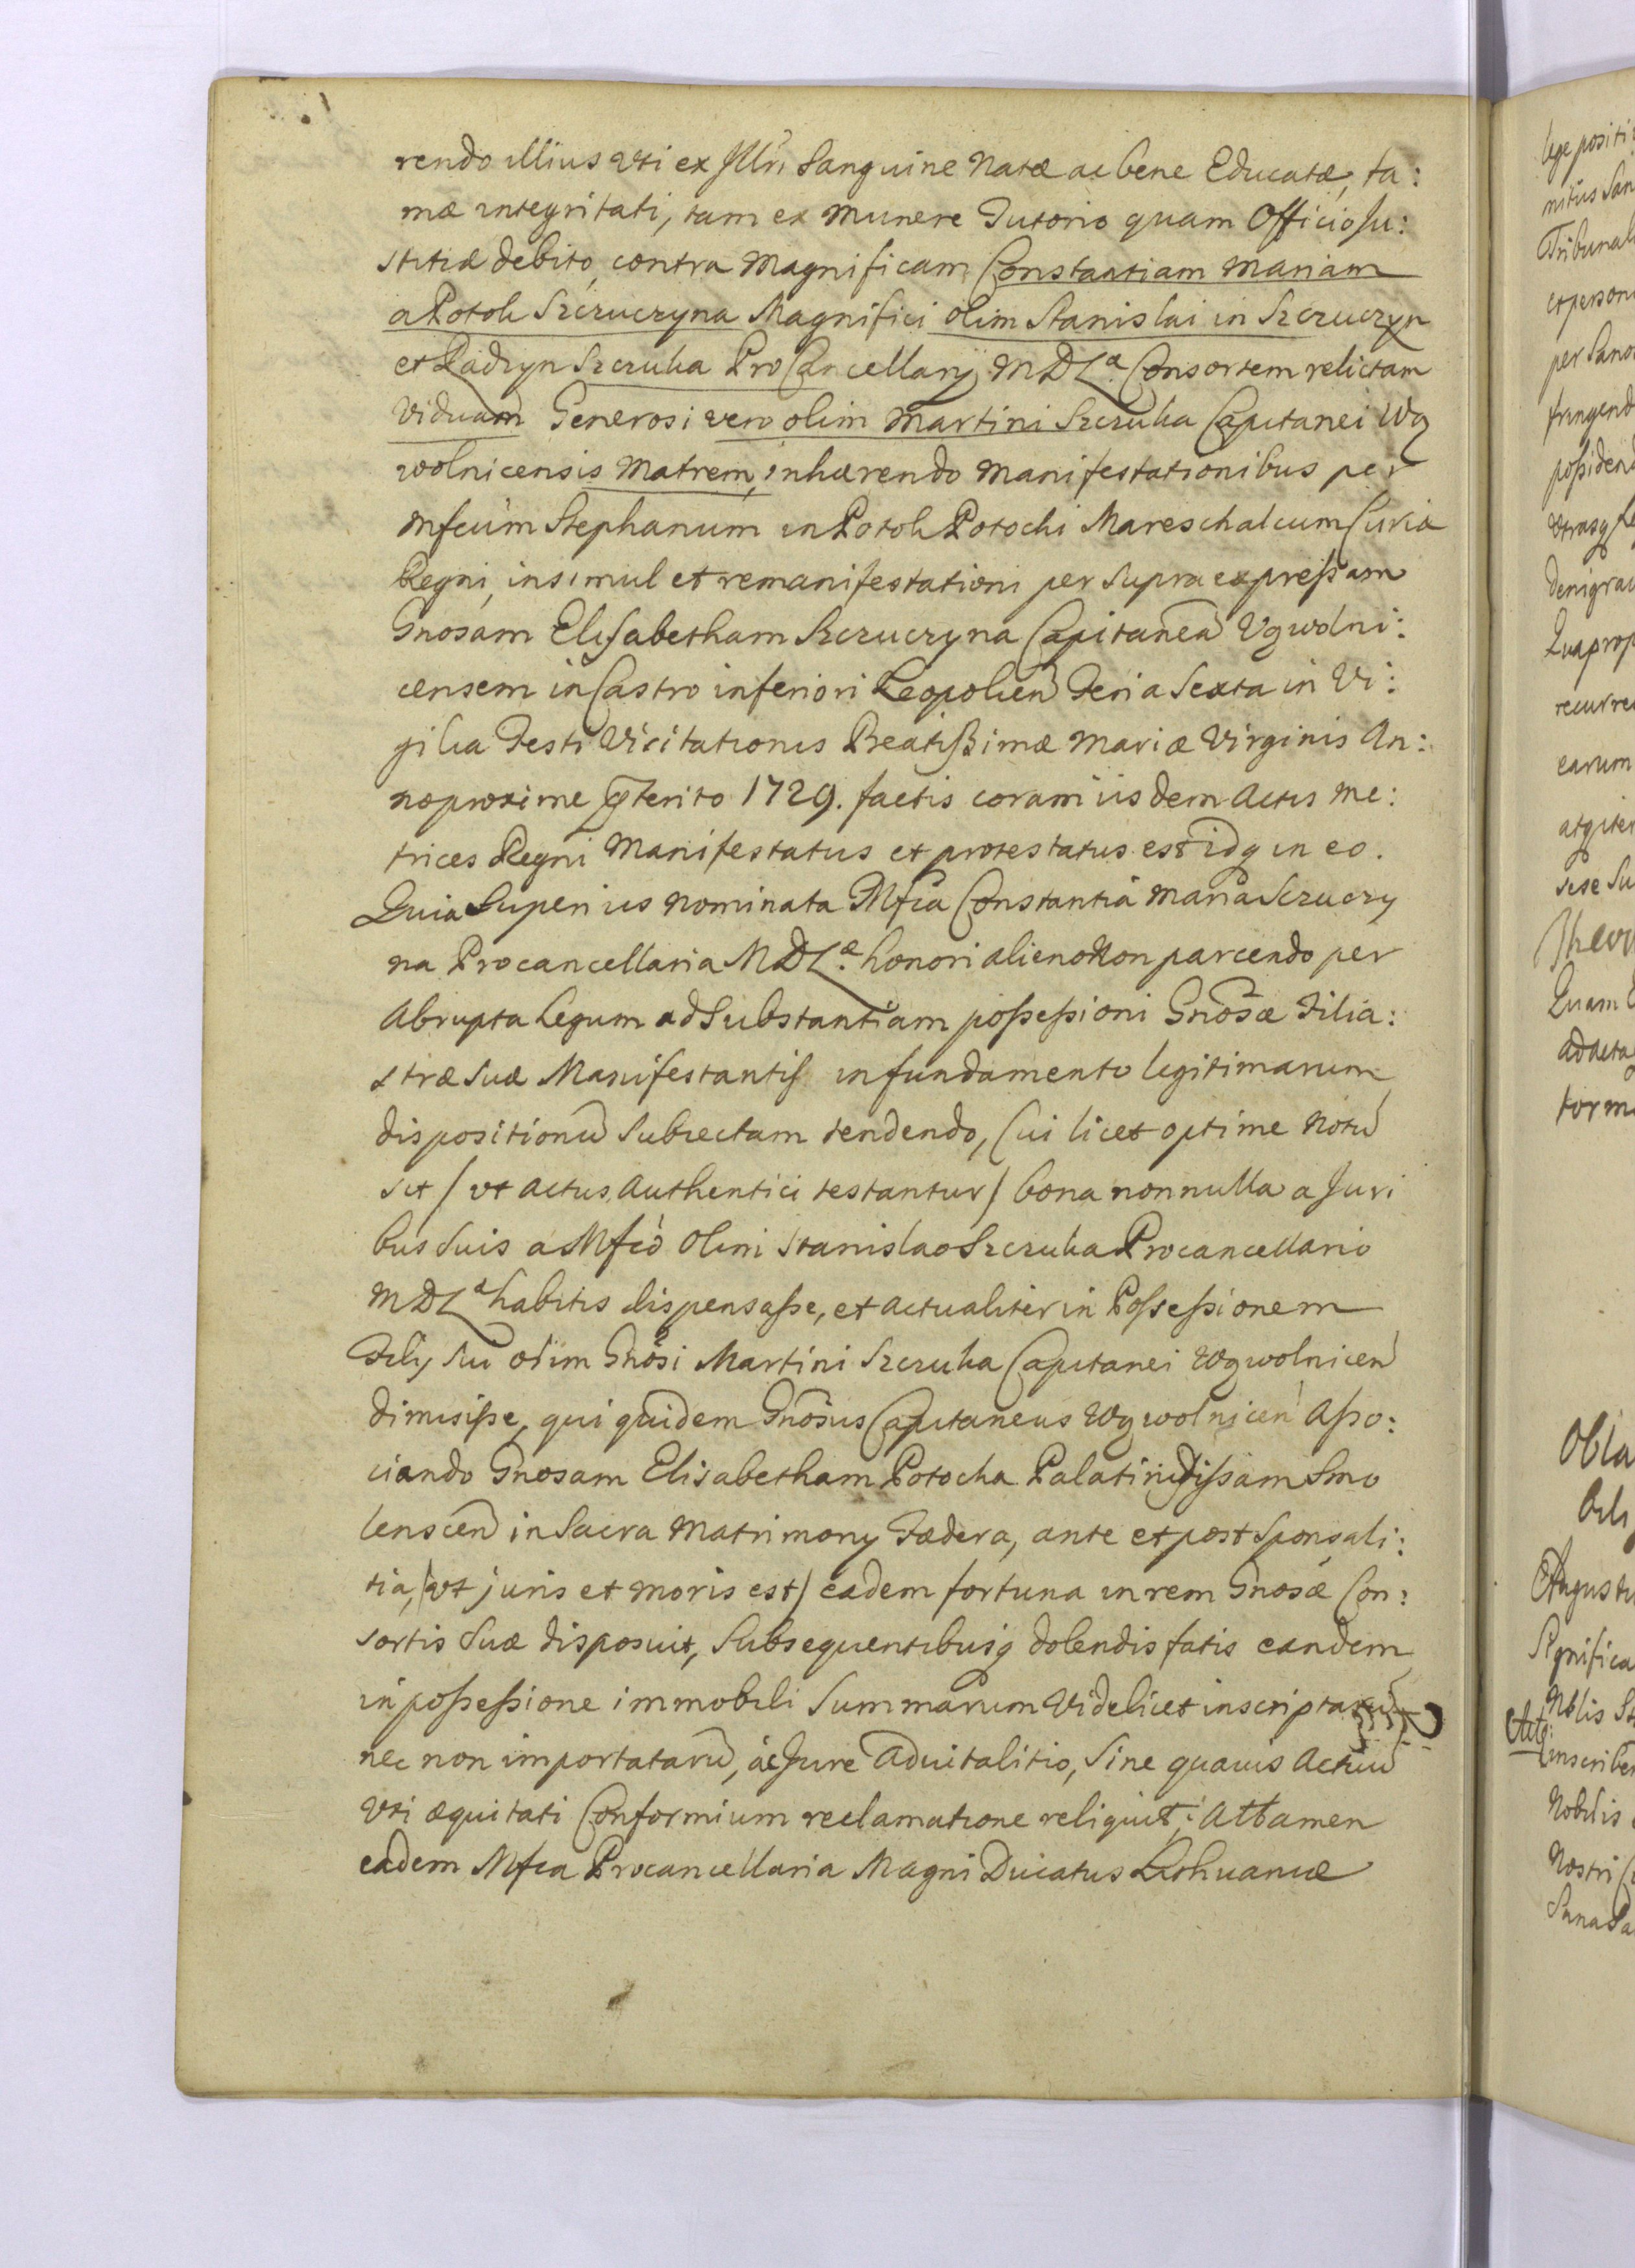 rendo illius Vti ex Jllri Sanguine Natæ ac bene Educatæ, fa:
mæ integritati, tam ex Munere Tutorio quam Officio Ju:
stitiæ debito, contra Magnificam Constantiam Mariam
a Potok Szczuczyna Magnifici olim Stanislai in Szczuczyn
et Radzyn Szczuka ProCancellarij MDLæ Consortem relictam
Viduam Generosi vero olim Martini Szczuka Capitanei Wą
wolnicensis Matrem, inhærendo Manifestationibus per
Mfcum Stephanum in Potok Potocki Mareschalcum Curiæ
Regni, insimul et remanifestationi per Supra expressam
Gnosam Elisabetham Szczuczyna Capitanea Vąwolni:
censem in Castro inferiori Leopolien Feria Sexta in Vi:
gilia Festi Visitationis Beatissimæ Mariæ Virginis An:
no proxime pterito 1729. factis coram iisdem Actis Me:
trices Regni Manifestatus et protestatus est idq in eo.
Quia Superius Nominata Mfca Constantia Maria Sczuczy
na Procancellaria MDLæ. honori alieno Non parcendo per
Abrupta Legum ad Substantiam possessioni Gnosæ Filia:
stræ Suæ Manifestantis in fundamento legitimarum
dispositionu Subiectam tendendo, Cui licet optime Notu
sit / vt Actus Authentici testantur / bona nonnulla a Juri
bus Suis a Mfco Olim Stanislao Szczuka Procancellario
MDLæ habitis dispensasse, et actualiter in Possessionem
Filij sui olim Gnosi Martini Szczuka Capitanei Wąwolnicen
dimisisse, qui quidem Gnosus Capitaneus Wąwolnicen Asso:
ciando Gnosam Elisabetham Potocka Palatinidissam Smo
lenscen in Sacra Matrimonij Fædera, ante et post Sponsali:
tia, / vt juris et moris est / eadem fortuna in rem Gnosæ Con:
sortis Suæ disposuit, Subsequentibusq dolendis fatis eandem
in possessione immobili Summarum Videlicet inscriptaru
nec non importataru, ac Jure Aduitalitio, Sine quauis Actuu
Vti æquitati Conformium reclamatione reliquit; Attamen
eadem Mfca Procancellaria Magni Ducatus Lithuaniæ